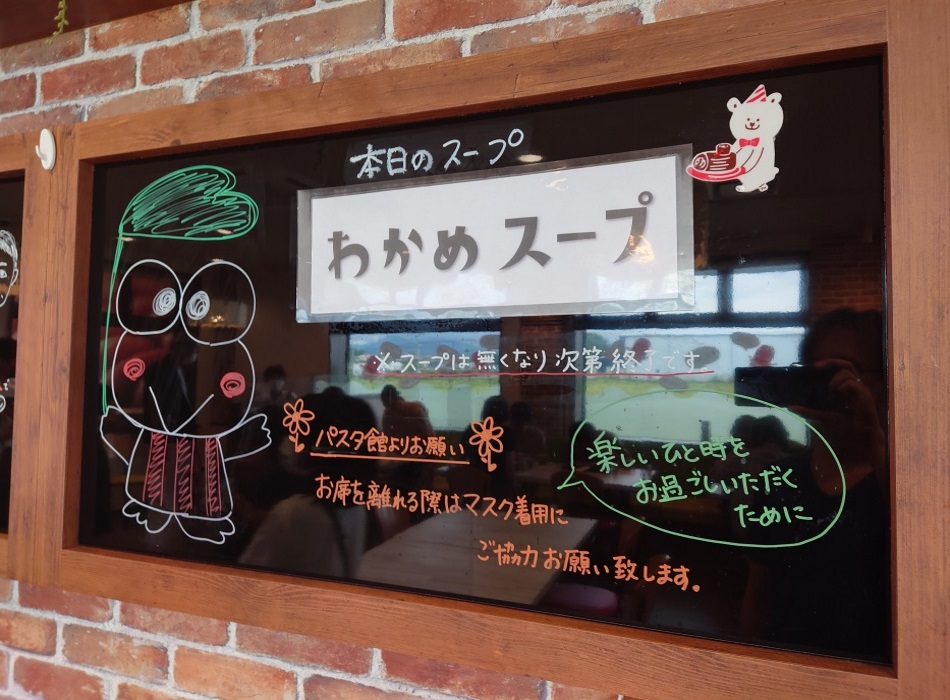 本日のスープ
わかめスープ
※スープは無くなり次第終了です
パスタ館よりお願い
お席を離れる際はマスク着用に
ご協力お願い致します。
楽しいひと時を
お過ごしいただく
ために